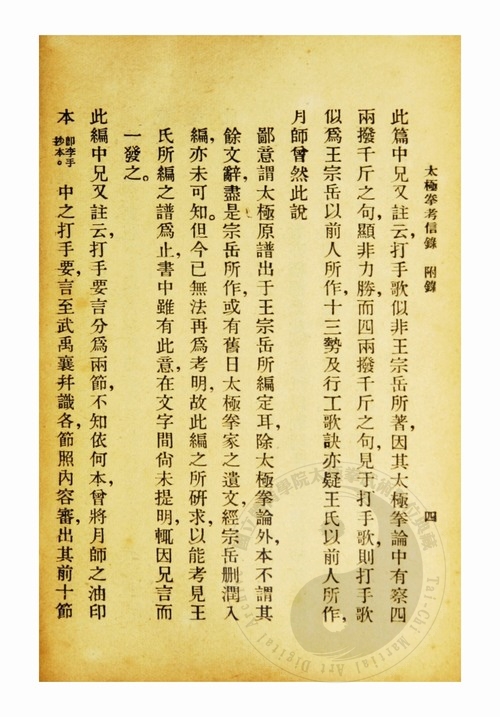 太極拳考信錄　附錄
四
此篇中兄又註云，打手歌似非王宗岳所著，因其太極拳論中有察四
兩撥千斤之句，顯非力勝，而四兩撥千斤之句，見于打手歌，則打手歌
似爲王宗岳以前人所作，十三勢及行工歌訣亦疑王氏以前人所作，
月師曾然此說
鄙意謂太極原譜出于王宗岳所編定耳，除太極拳論外，本不謂其
餘文辭盡是宗岳所作，或有舊日太極拳家之遺文，經宗岳刪潤入
編，亦未可知。但今已無法再爲考明，故此編之所研求，以能考見王
氏所編之譜爲止，書中雖有此意，在文字間尙未提明，輒因兄言而
一發之。
此編中兄又註云，打手要言分爲兩節，不知依何本，曾將月師之油印
本 卽李手抄本。 中之打手要，言至武禹襄幷識各，節照內容審，出其前十節
Tai-Chi Martial Art Digital